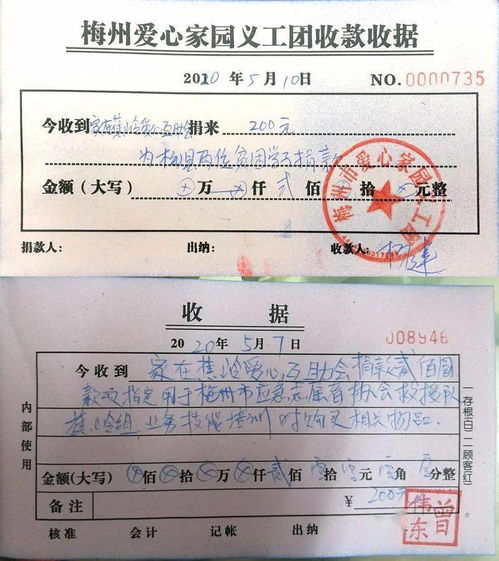 梅州爱心家园义工团收款收据
2020年5月10日 NO.0000735
今收到家在蕉岭爱心互助会捐来200元
为梅县两位贫困学子捐款
金额（大写）⊗万⊗仟贰佰拾元整
捐款人： 出纳： 收款人：
梅州市爱心家园义工团
收据
2020年5月7日 008946
今收到家在蕉岭爱心互助会捐款贰佰圆
款项指定用于梅州市应急志愿者协会救援队
蕉岭组业务技能培训时购买相关物品。
金额（大写）⊗佰⊗拾⊗万⊗仟贰佰零拾零元零角零分整
备注 ¥200元
核准 会计 记帐 出纳
内部使用
一存根（白）二顾客（红）
曾伟东